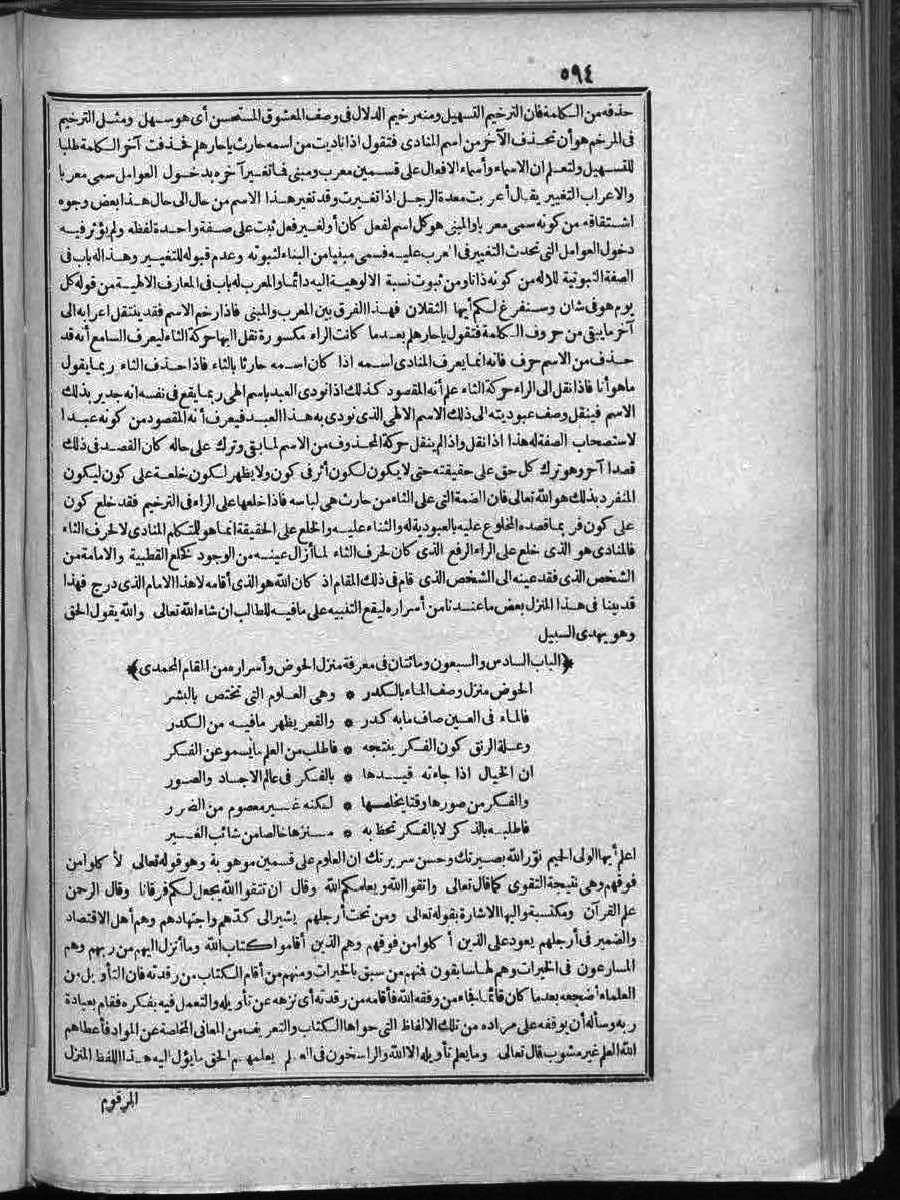 ٥٩٤
حذفه من الكلمة فان الترخيم التسهيل ومنه رخيم الدلال فى وصف المعشوق المستحسن أى هو سهل ومثل الترخيم
فى المرخم هو أن تحذف الآخر من اسم المنادى فتقول اذا ناديت من اسمه حارث يا حار هلم فحذفت آخر الكلمة طلبا
للتسهيل ولتعلم ان الاسماء وأسماء الافعال على قسمين معرب ومبنى فما تغير آخره بدخول العوامل سمى معربا
والاعراب التغيير يقال أعربت معدة الرجل اذا تغيرت وقد تغير هذا الاسم من حال الى حال هذا بعض وجوه
اشتقاقه من كونه سمى معربا والمبنى هو كل اسم لفعل كان أو لغير فعل ثبت على صفة واحدة لفظه ولم يؤثر فيه
دخول العوامل التى تحدث التغيير فى المعرب عليه فسمى مبنيا من البناء لثبوته وعدم قبوله للتغيير وهذا له باب فى
الصفة الثبوتية للاله من كونه ذاتا ومن ثبوت نسبة الالوهية اليه دائما والمعرب له باب فى المعارف الالهية من قوله كل
يوم هو فى شان وسنفرغ لكم أيها الثقلان فهذا الفرق بين المعرب والمبنى فاذا رخم الاسم فقد ينتقل اعرابه الى
آخر ما يبقى من حروف الكلمة فتقول يا حار هلم بعدما كانت الراء مكسورة نقل اليها حركة الثاء ليعرف السامع أنه قد
حذف من الاسم حرف فانه انما يعرف المنادى اسمه اذا كان اسمه حارثا بالثاء فاذا حذف الثاء ربما يقول
ما هو أنا فاذا نقل الى الراء حركة الثاء علم أنه المقصود كذلك اذا نودى العبد باسم الهى ربما يقع فى نفسه انه جدير بذلك
الاسم فينقل وصف عبوديته الى ذلك الاسم الالهى الذى نودى به هذا العبد فيعرف أنه المقصود من كونه عبدا
لاستصحاب الصفة له هذا اذا نقل واذا لم ينقل حركة المحذوف من الاسم لما بقى وترك على حاله كان القصد فى ذلك
قصدا آخر وهو ترك كل حق على حقيقته حتى لا يكون لكون أثر فى كون ولا يظهر لكون خلعة على كون ليكون
المنفرد بذلك هو الله تعالى فان الضمة التى على الثاء من حارث هى لباسه فاذا خلعها على الراء فى الترخيم فقد خلع كون
على كون فربما قصده المخلوع عليه بالعبودية له والثناء عليه والخلع على الحقيقة انما هو للمتكلم المنادى لا لحرف الثاء
فالمنادى هو الذى خلع على الراء الرفع الذى كان لحرف الثاء لما أزال عينه من الوجود كخلع القطبية والامامة من
الشخص الذى فقد عينه الى الشخص الذى قام فى ذلك المقام اذ كان الله هو الذى أقامه لا هذا الامام الذى درج فهذا
قد بينا فى هذا المنزل بعض ما عندنا من أسراره ليقع التنبيه على ما فيه للطالب ان شاء الله تعالى والله يقول الحق
وهو يهدى السبيل
﴿الباب السادس والسبعون ومائتان فى معرفة منزل الحوض وأسراره من المقام المحمدى﴾
الحوض منزل وصف الماء بالكدر * وهى العلوم التى تختص بالبشر
فالماء فى العين صاف ما به كدر * والقعر يظهر ما فيه من الكدر
وعلة الرنق كون الفكر ينتجه * فاطلب من العلم ما يسمو عن الفكر
ان الخيال اذا جاءته قيدها * بالفكر فى عالم الاجساد والصور
والفكر من صورها وقتا يخلصها * لكنه غير معصوم من الضرر
فاطلبه بالذكر لا بالفكر تحظ به * منزها خالصا من شائب الغير
اعلم أيها الولى الحميم نور الله بصيرتك وحسن سريرتك ان العلوم على قسمين موهوبة وهو قوله تعالى لأكلوا من
فوقهم وهى نتيجة التقوى كما قال تعالى واتقوا الله ويعلمكم الله وقال ان تتقوا الله يجعل لكم فرقانا وقال الرحمن
علم القرآن ومكتسبة واليها الاشارة بقوله تعالى ومن تحت أرجلهم يشير الى كدهم واجتهادهم وهم أهل الاقتصاد
والضمير فى أرجلهم يعود على الذين أكلوا من فوقهم وهم الذين أقاموا كتاب الله وما أنزل اليهم من ربهم وهم
المسارعون فى الخيرات وهم لها سابقون فمنهم من سبق بالخيرات ومنهم من أقام الكتاب من رقدته فان التأويل من
العلماء أضجعه بعدما كان قائما فجاء من وفقه الله فأقامه من رقدته أى نزهه عن تأويله والتعمل فيه بفكره فقام بعبادة
ربه وسأله أن يوقفه على مراده من تلك الالفاظ التى حواها الكتاب والتعريف من المعانى المخلصة عن المواد فأعطاهم
الله العلم غير مشوب قال تعالى وما يعلم تأويله الا الله والراسخون فى العلم يعلمهم الحق ما يؤل اليه هذا اللفظ المنزل
المرقوم